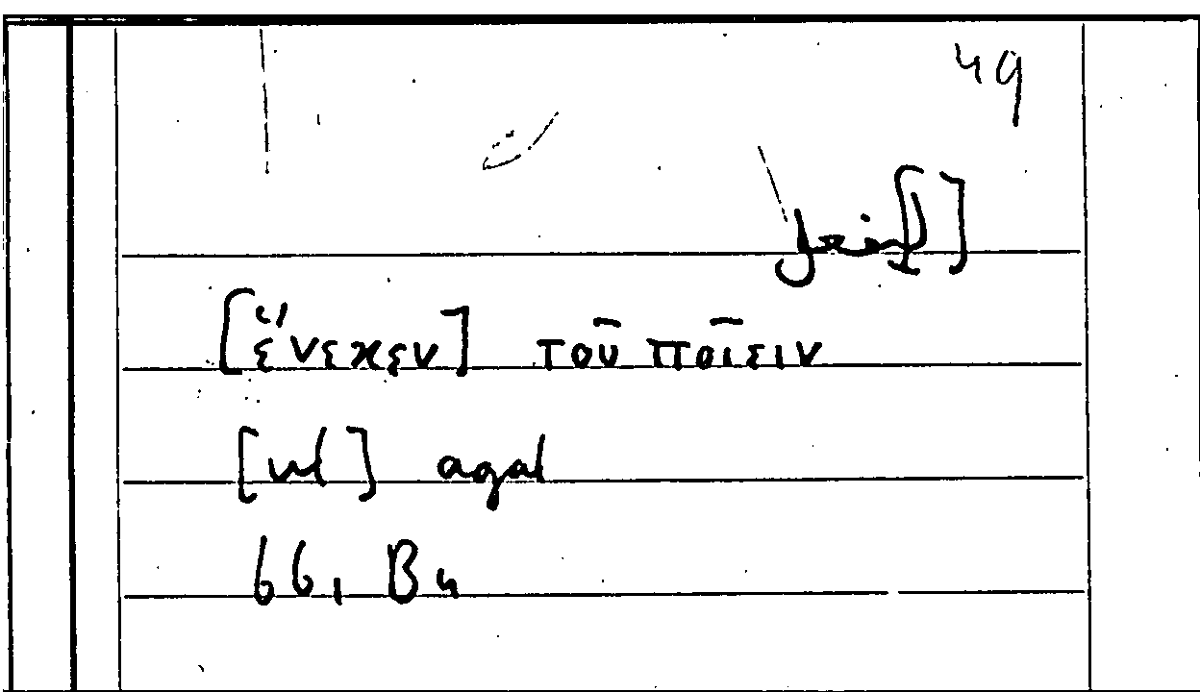 49
[ἕνεκεν] τοῦ ποῖειν
[vel] agal
66, B4